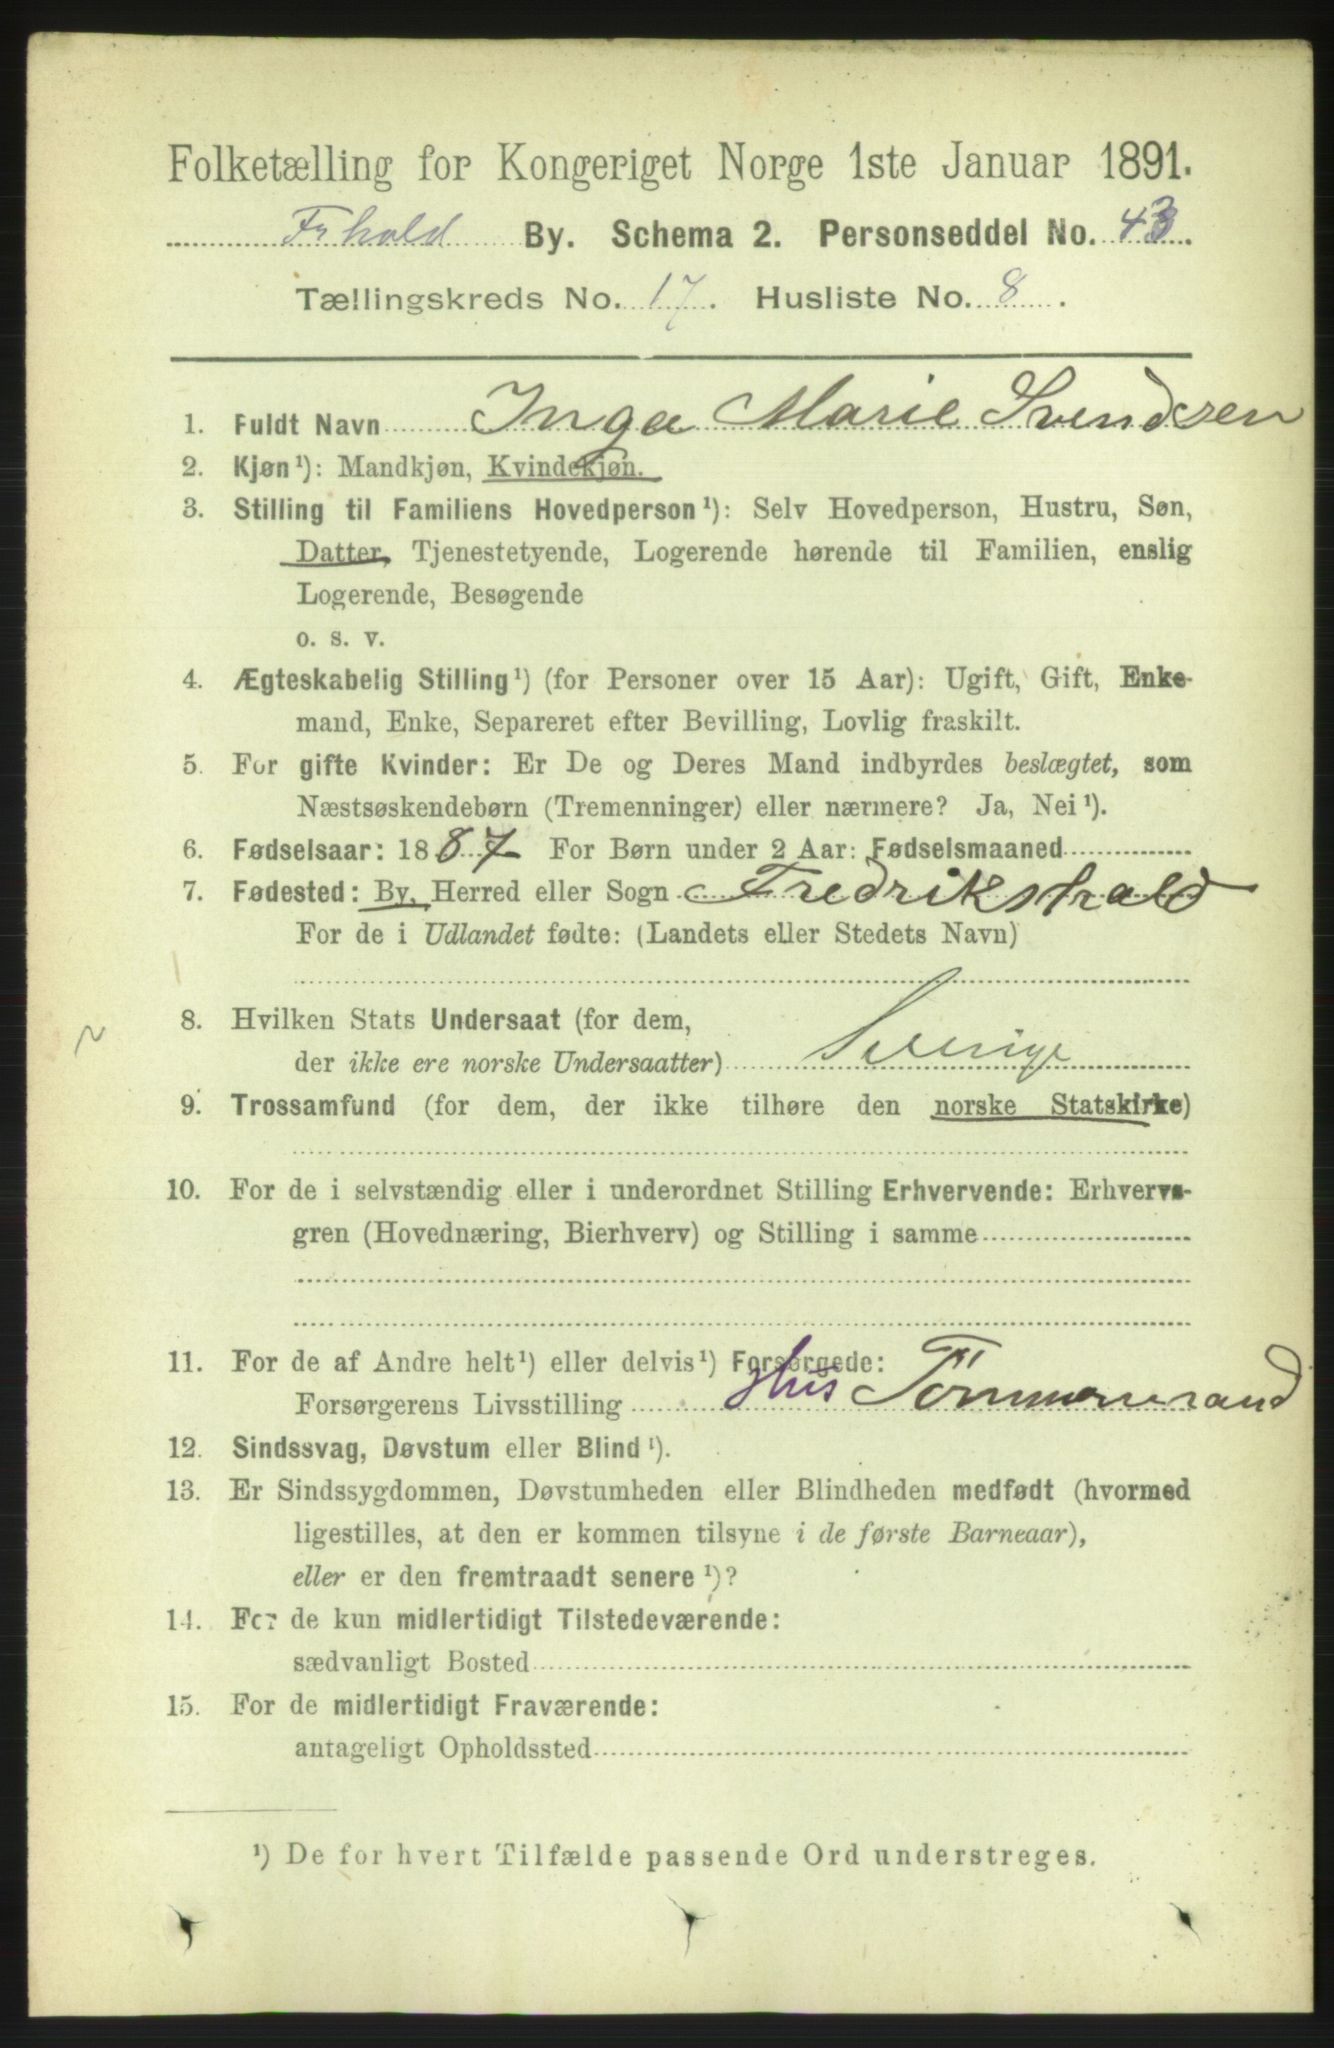 Folketælling for Kongeriget Norge 1ste Januar 1891.
Frhald By. Schema 2. Personseddel No. 43.
Tællingskreds No. 17. Husliste No. 8.
1. Fuldt Navn Inga Marie Svendsen
2. Kjøn¹): Mandkjøn, Kvindekjøn.
3. Stilling til Familiens Hovedperson¹): Selv Hovedperson, Hustru, Søn,
Datter, Tjenestetyende, Logerende hørende til Familien, enslig
Logerende, Besøgende
o. s. v.
4. Ægteskabelig Stilling¹) (for Personer over 15 Aar): Ugift, Gift, Enke-
mand, Enke, Separeret efter Bevilling, Lovlig fraskilt.
5. For gifte Kvinder: Er De og Deres Mand indbyrdes beslægtet, som
Næstsøskendebørn (Tremenninger) eller nærmere? Ja, Nei¹).
6. Fødselsaar: 1887 For Børn under 2 Aar: Fødselsmaaned
7. Fødested: By, Herred eller Sogn Fredrikshald
For de i Udlandet fødte: (Landets eller Stedets Navn)
8. Hvilken Stats Undersaat (for dem,
der ikke ere norske Undersaatter) Sverige
9. Trossamfund (for dem, der ikke tilhøre den norske Statskirke)
10. For de i selvstændig eller i underordnet Stilling Erhvervende: Erhvervs-
gren (Hovednæring, Bierhverv) og Stilling i samme
11. For de af Andre helt¹) eller delvis¹) Forsørgede:
Forsørgerens Livsstilling Hus
12. Sindssvag, Døvstum eller Blind¹).
13. Er Sindssygdommen, Døvstumheden eller Blindheden medfødt (hvormed
ligestilles, at den er kommen tilsyne i de første Barneaar),
eller er den fremtraadt senere¹)?
14. For de kun midlertidigt Tilstedeværende:
sædvanligt Bosted
15. For de midlertidigt Fraværende:
antageligt Opholdssted
¹) De for hvert Tilfælde passende Ord understreges.